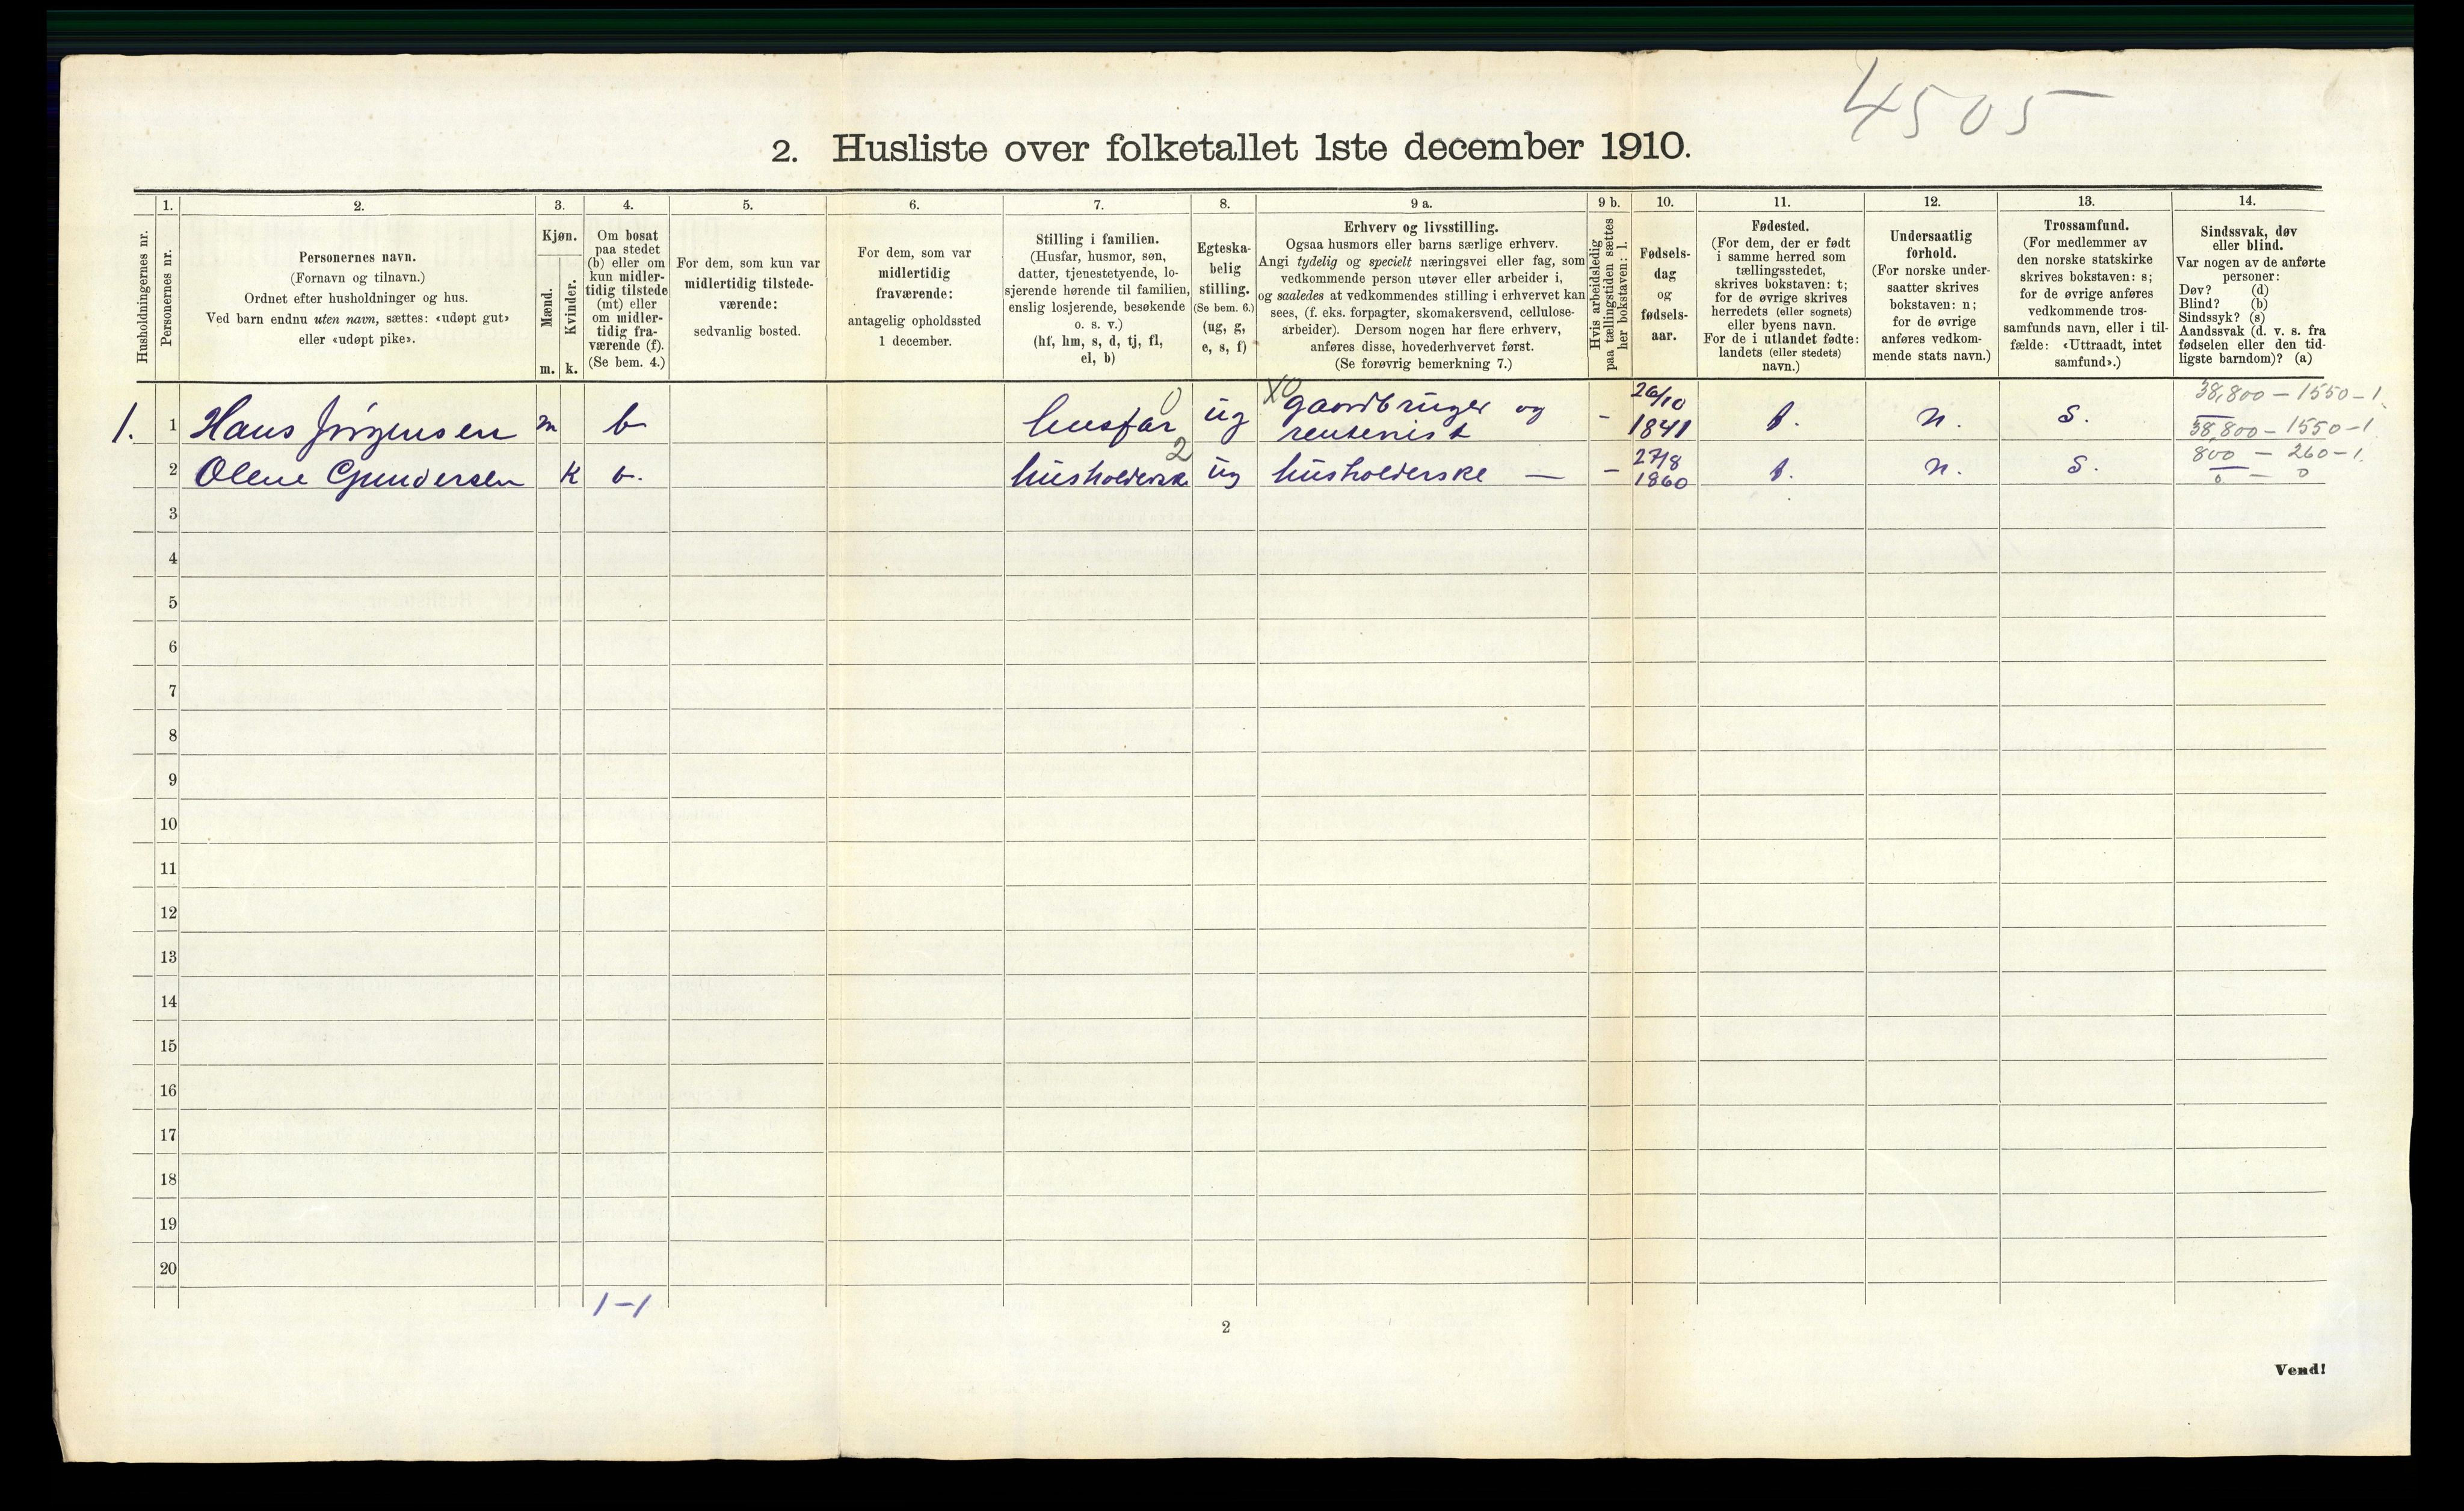 4505
2. Husliste over folketallet 1ste december 1910.
Husholdningernes nr.
1.
Personernes nr.
2.
Personernes navn.
(Fornavn og tilnavn.)
Ordnet efter husholdninger og hus.
Ved barn endnu uten navn, sættes: «udøpt gut»
eller «udøpt pike».
3.
Kjøn.
Mænd.
Kvinder.
m. k.
4.
Om bosat
paa stedet
(b) eller om
kun midler-
tidig tilstede
(mt) eller
om midler-
tidig fra-
værende (f).
(Se bem. 4.)
5.
For dem, som kun var
midlertidig tilstede-
værende:
sedvanlig bosted.
6.
For dem, som var
midlertidig
fraværende:
antagelig opholdssted
1 december.
7.
Stilling i familien.
(Husfar, husmor, søn,
datter, tjenestetyende, lo-
sjerende hørende til familien,
enslig losjerende, besøkende
o. s. v.)
(hf, hm, s, d, tj, fl,
el, b)
8.
Egteska-
belig
stilling.
(Se bem. 6.)
(ug, g,
e, s, f)
9 a.
Erhverv og livsstilling.
Ogsaa husmors eller barns særlige erhverv.
Angi tydelig og specielt næringsvei eller fag, som
vedkommende person utøver eller arbeider i,
og saaledes at vedkommendes stilling i erhvervet kan
sees, (f. eks. forpagter, skomakersvend, cellulose-
arbeider). Dersom nogen har flere erhverv,
anføres disse, hovederhvervet først.
(Se forøvrig bemerkning 7.)
9 b.
Hvis arbeidsledig
paa tællingstiden sættes
her bokstaven: l.
10.
Fødsels-
dag
og
fødsels-
aar.
11.
Fødested.
(For dem, der er født
i samme herred som
tællingsstedet,
skrives bokstaven: t;
for de øvrige skrives
herredets (eller sognets)
eller byens navn.
For de i utlandet fødte:
landets (eller stedets)
navn.)
12.
Undersaatlig
forhold.
(For norske under-
saatter skrives
bokstaven: n;
for de øvrige
anføres vedkom-
mende stats navn.)
13.
Trossamfund.
(For medlemmer av
den norske statskirke
skrives bokstaven: s;
for de øvrige anføres
vedkommende tros-
samfunds navn, eller i til-
fælde: «Uttraadt, intet
samfund».)
14.
Sindssvak, døv
eller blind.
Var nogen av de anførte
personer:
Døv? (d)
Blind? (b)
Sindssyk? (s)
Aandssvak (d. v. s. fra
fødselen eller den tid-
ligste barndom)? (a)
1. 1 Hans Jörgensen m b husfar 0 ug X0 gaardbruger og rentenist - 26/10 1841 t. n. s. 38,800 - 1550 - 1.
38,800 - 1550 - 1
2 Olene Gundersen k b. husholderske 2 ug husholderske — - 27/8 1860 t. n. s. 800 - 260 - 1.
0 - 0
3
4
5
6
7
8
9
10
11
12
13
14
15
16
17
18
19
20
1-1
2
Vend!